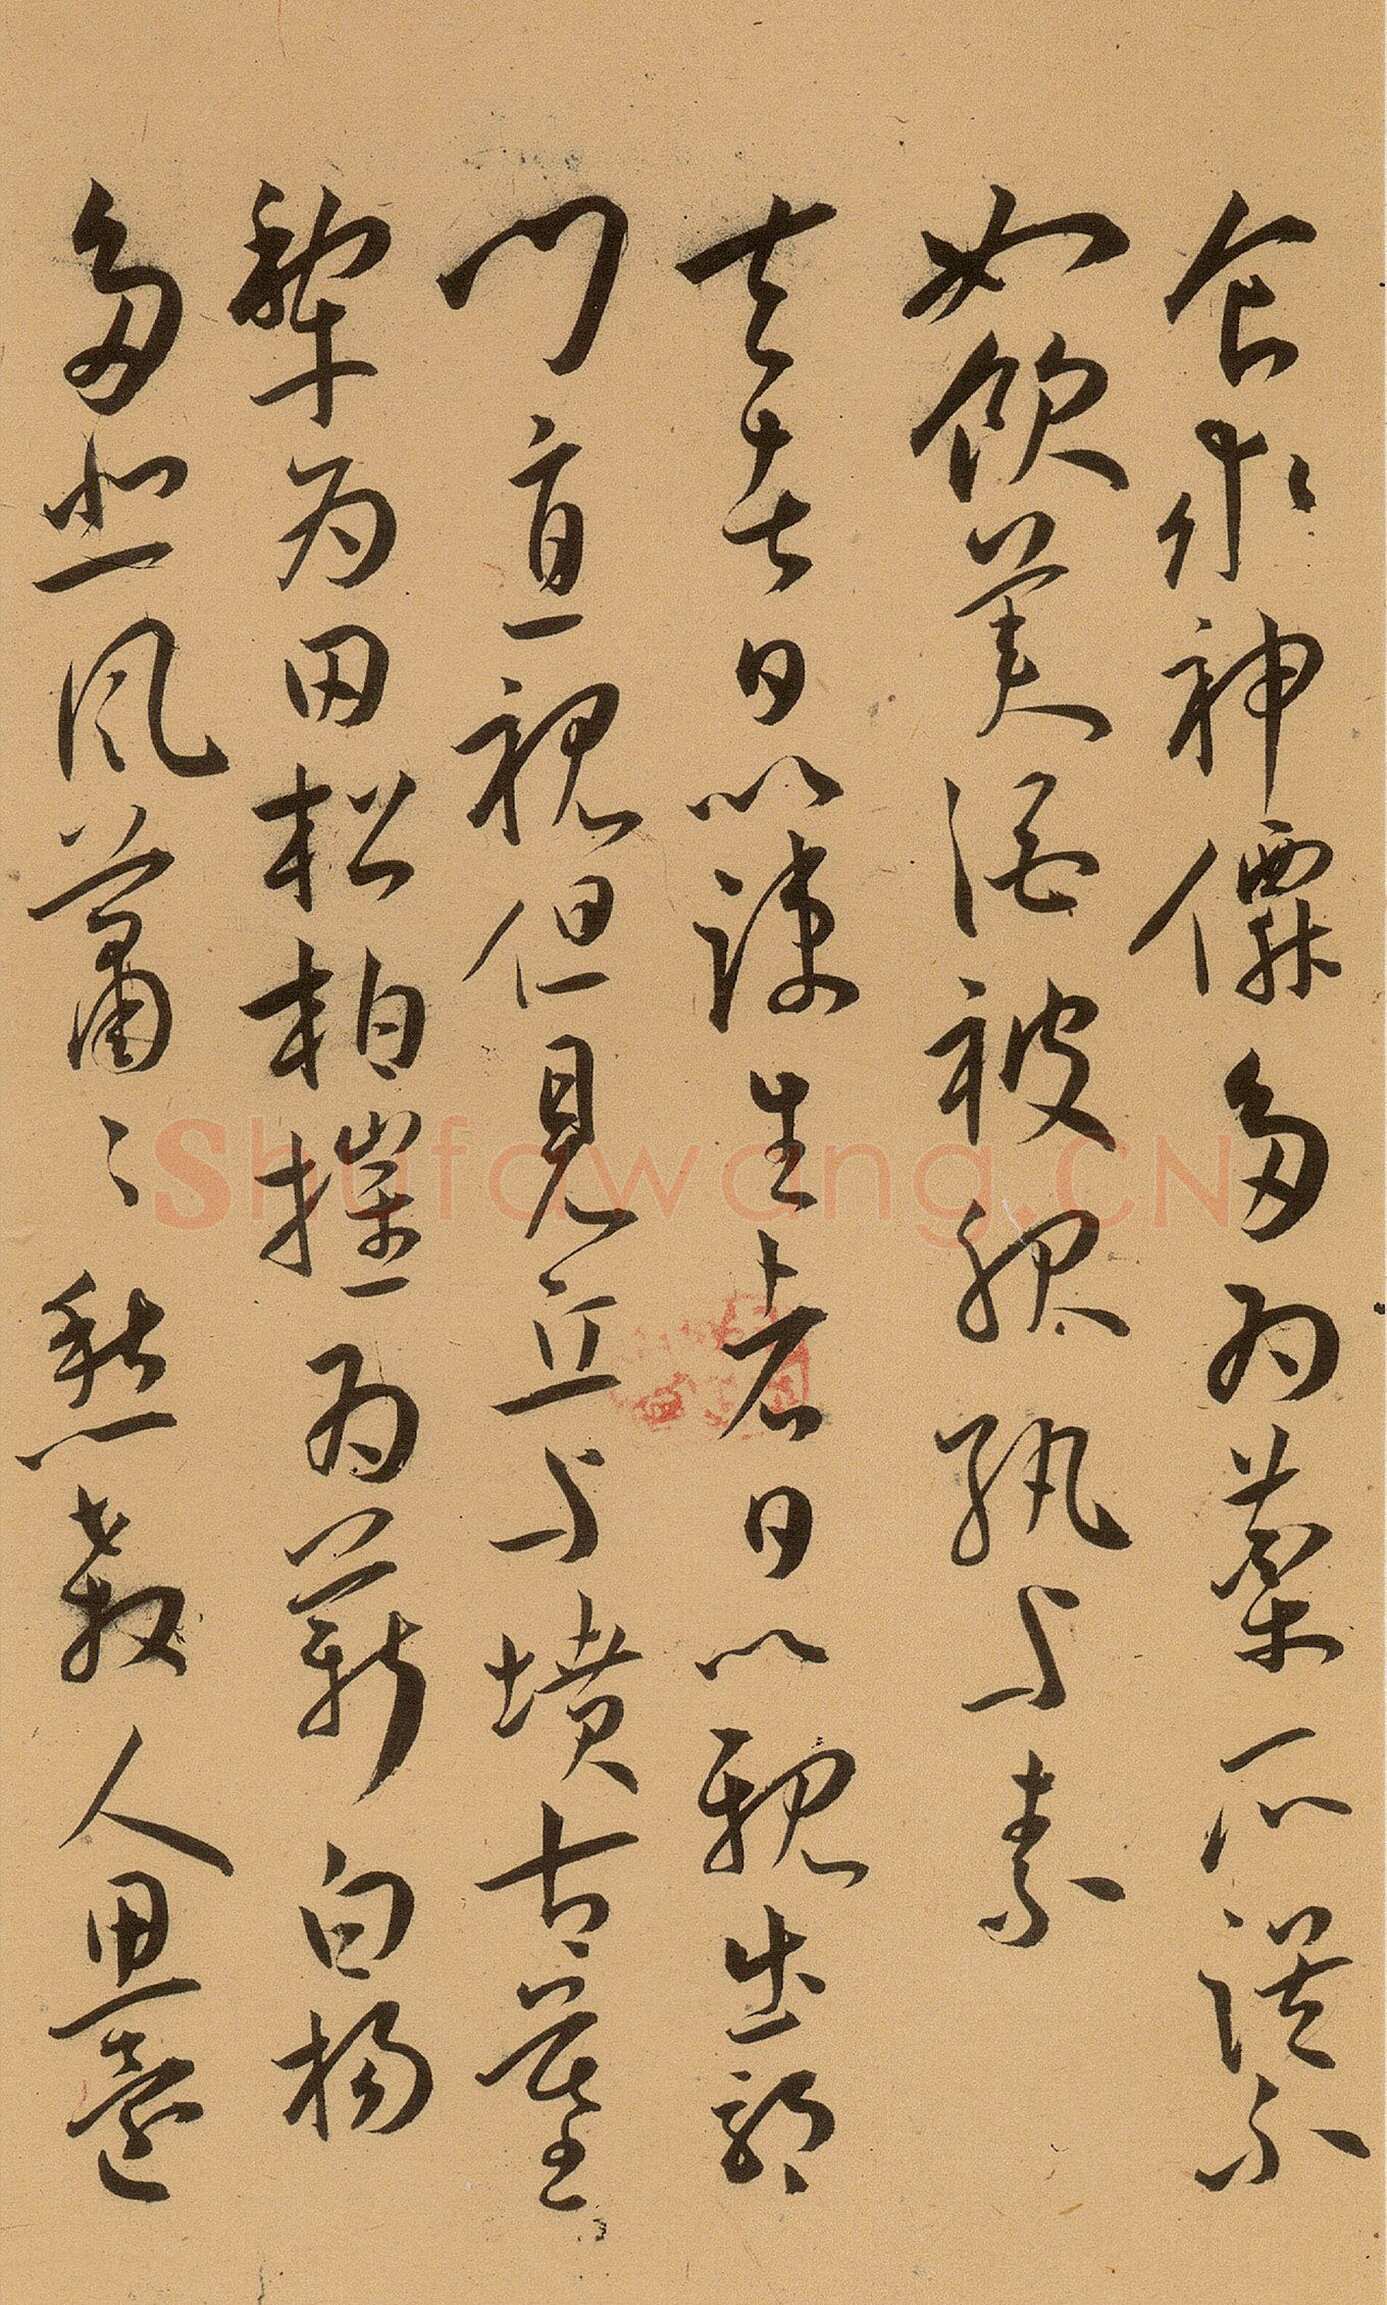 食求神僊多为藥所誤不
如飲美酒被服紈与素
去者日以疎生者日以親出郭
門直視但見丘与墳古墓
犁为田松柏摧为薪白楊
多悲風蕭〻愁殺人思還
Shufawang.CN